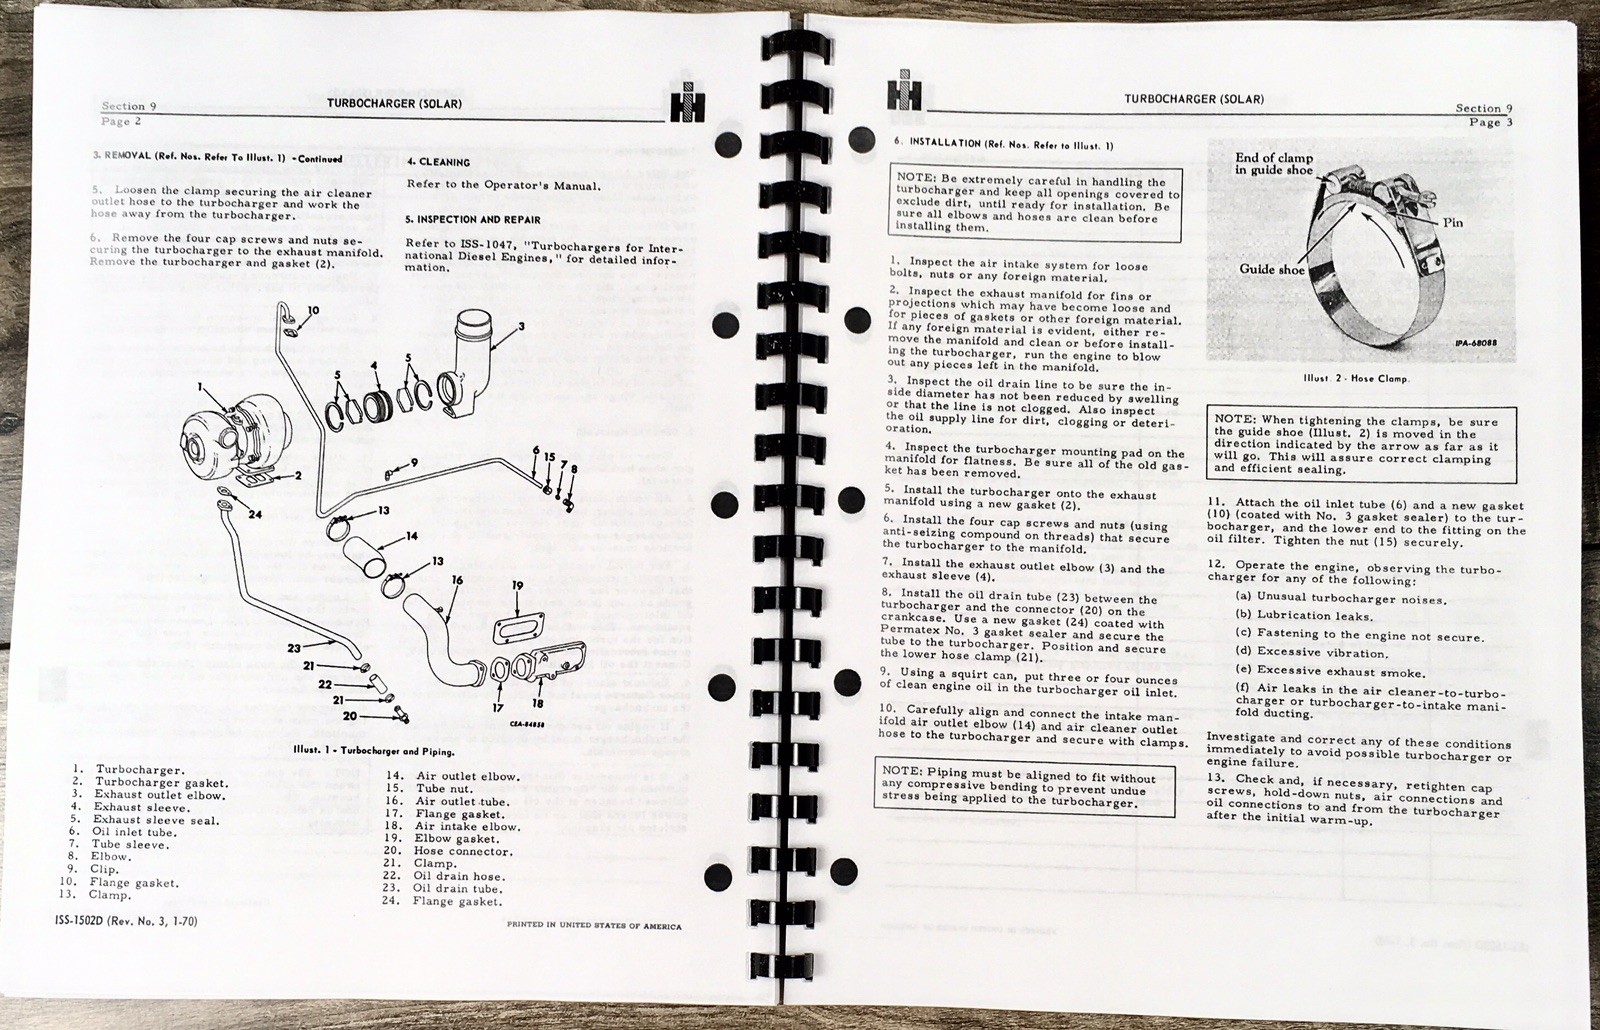 Section 9
Page 2
TURBOCHARGER (SOLAR)
IH
3. REMOVAL (Ref. Nos. Refer To Illust. 1) - Continued
5. Loosen the clamp securing the air cleaner
outlet hose to the turbocharger and work the
hose away from the turbocharger.
6. Remove the four cap screws and nuts se-
curing the turbocharger to the exhaust manifold.
Remove the turbocharger and gasket (2).
4. CLEANING
Refer to the Operator's Manual.
5. INSPECTION AND REPAIR
Refer to ISS-1047, "Turbochargers for Inter-
national Diesel Engines," for detailed infor-
mation.
10
3
5
4
5
1
2
24
9
6
15
7
8
13
14
13
16
19
23
21
22
21
20
17
18
CEA-84858
Illust. 1 - Turbocharger and Piping.
1. Turbocharger.
2. Turbocharger gasket.
3. Exhaust outlet elbow.
4. Exhaust sleeve.
5. Exhaust sleeve seal.
6. Oil inlet tube.
7. Tube sleeve.
8. Elbow.
9. Clip.
10. Flange gasket.
13. Clamp.
14. Air outlet elbow.
15. Tube nut.
16. Air outlet tube.
17. Flange gasket.
18. Air intake elbow.
19. Elbow gasket.
20. Hose connector.
21. Clamp.
22. Oil drain hose.
23. Oil drain tube.
24. Flange gasket.
ISS-1502D (Rev. No. 3, 1-70)
PRINTED IN UNITED STATES OF AMERICA
IH
TURBOCHARGER (SOLAR)
Section 9
Page 3
6. INSTALLATION (Ref. Nos. Refer to Illust. 1)
NOTE: Be extremely careful in handling the
turbocharger and keep all openings covered to
exclude dirt, until ready for installation. Be
sure all elbows and hoses are clean before
installing them.
1. Inspect the air intake system for loose
bolts, nuts or any foreign material.
2. Inspect the exhaust manifold for fins or
projections which may have become loose and
for pieces of gaskets or other foreign material.
If any foreign material is evident, either re-
move the manifold and clean or before install-
ing the turbocharger, run the engine to blow
out any pieces left in the manifold.
3. Inspect the oil drain line to be sure the in-
side diameter has not been reduced by swelling
or that the line is not clogged. Also inspect
the oil supply line for dirt, clogging or deteri-
oration.
4. Inspect the turbocharger mounting pad on the
manifold for flatness. Be sure all of the old gas-
ket has been removed.
5. Install the turbocharger onto the exhaust
manifold using a new gasket (2).
6. Install the four cap screws and nuts (using
anti-seizing compound on threads) that secure
the turbocharger to the manifold.
7. Install the exhaust outlet elbow (3) and the
exhaust sleeve (4).
8. Install the oil drain tube (23) between the
turbocharger and the connector (20) on the
crankcase. Use a new gasket (24) coated with
Permatex No. 3 gasket sealer and secure the
tube to the turbocharger. Position and secure
the lower hose clamp (21).
9. Using a squirt can, put three or four ounces
of clean engine oil in the turbocharger oil inlet.
10. Carefully align and connect the intake man-
ifold air outlet elbow (14) and air cleaner outlet
hose to the turbocharger and secure with clamps.
NOTE: Piping must be aligned to fit without
any compressive bending to prevent undue
stress being applied to the turbocharger.
End of clamp
in guide shoe
Pin
Guide shoe
IPA-68088
Illust. 2 - Hose Clamp.
NOTE: When tightening the clamps, be sure
the guide shoe (Illust. 2) is moved in the
direction indicated by the arrow as far as it
will go. This will assure correct clamping
and efficient sealing.
11. Attach the oil inlet tube (6) and a new gasket
(10) (coated with No. 3 gasket sealer) to the tur-
bocharger, and the lower end to the fitting on the
oil filter. Tighten the nut (15) securely.
12. Operate the engine, observing the turbo-
charger for any of the following:
(a) Unusual turbocharger noises.
(b) Lubrication leaks.
(c) Fastening to the engine not secure.
(d) Excessive vibration.
(e) Excessive exhaust smoke.
(f) Air leaks in the air cleaner-to-turbo-
charger or turbocharger-to-intake mani-
fold ducting.
Investigate and correct any of these conditions
immediately to avoid possible turbocharger or
engine failure.
13. Check and, if necessary, retighten cap
screws, hold-down nuts, air connections and
oil connections to and from the turbocharger
after the initial warm-up.